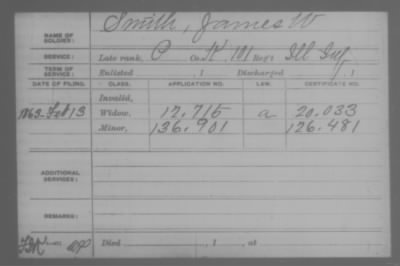 NAME OF SOLDIER: Smith, James W
SERVICE: Late rank, C Co. K, 101 Reg't Ill Inf
TERM OF SERVICE: Enlisted , 1 Discharged , 1
DATE OF FILING. CLASS. APPLICATION NO. LAW. CERTIFICATE NO.
Invalid,
1863 Feb 13 Widow, 12,715 a 20.033
Minor, 136.901 126.481
ADDITIONAL SERVICES:
REMARKS:
Died , 1 , at